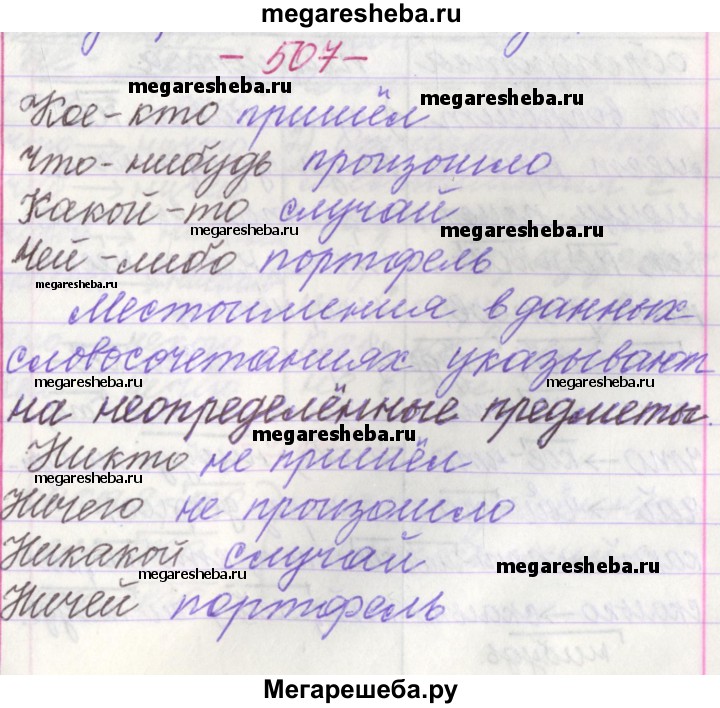 megaresheba.ru
- 507 -
megaresheba.ru
megaresheba.ru
Кое-кто пришёл
Что-нибудь произошло
megaresheba.ru
Какой-то случай
megaresheba.ru
megaresheba.ru
Чей-либо портфель
megaresheba.ru
Местоимения в данных
словосочетаниях указывают
megaresheba.ru
megaresheba.ru
на неопределённые предметы.
megaresheba.ru
Никто не пришёл
megaresheba.ru
Ничего не произошло
Никакой случай
megaresheba.ru
megaresheba.ru
Ничей портфель
нибудь
Мегарешеба.ру